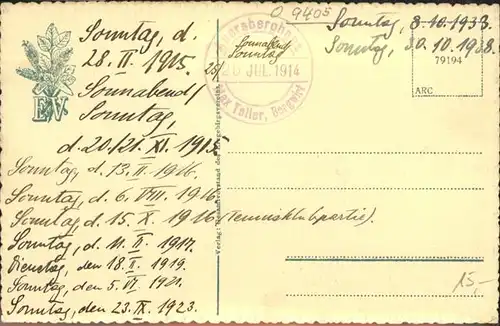 O 9405
Sonntag, 8.10.1933.
Sonntag, 30.10.1938.
79194
ARC
Sonnabend/
Sonntag
25/
26 JUL. 1914
Max Teller, Bergwirt
EV
Sonntag, d.
28. II. 1915.
Sonnabend/
Sonntag,
d. 20/21. XI. 1915.
Sonntag, d. 13. II. 1916.
Sonntag, d. 6. VIII. 1916
Sonntag, d. 15. X. 1916 (Tennisklubpartie).
Sonntag, d. 11. II. 1917.
Dienstag, den 18. II. 1919.
Sonntag, den 5. VI. 1921.
Sonntag, den 23. IX. 1923.
15,-